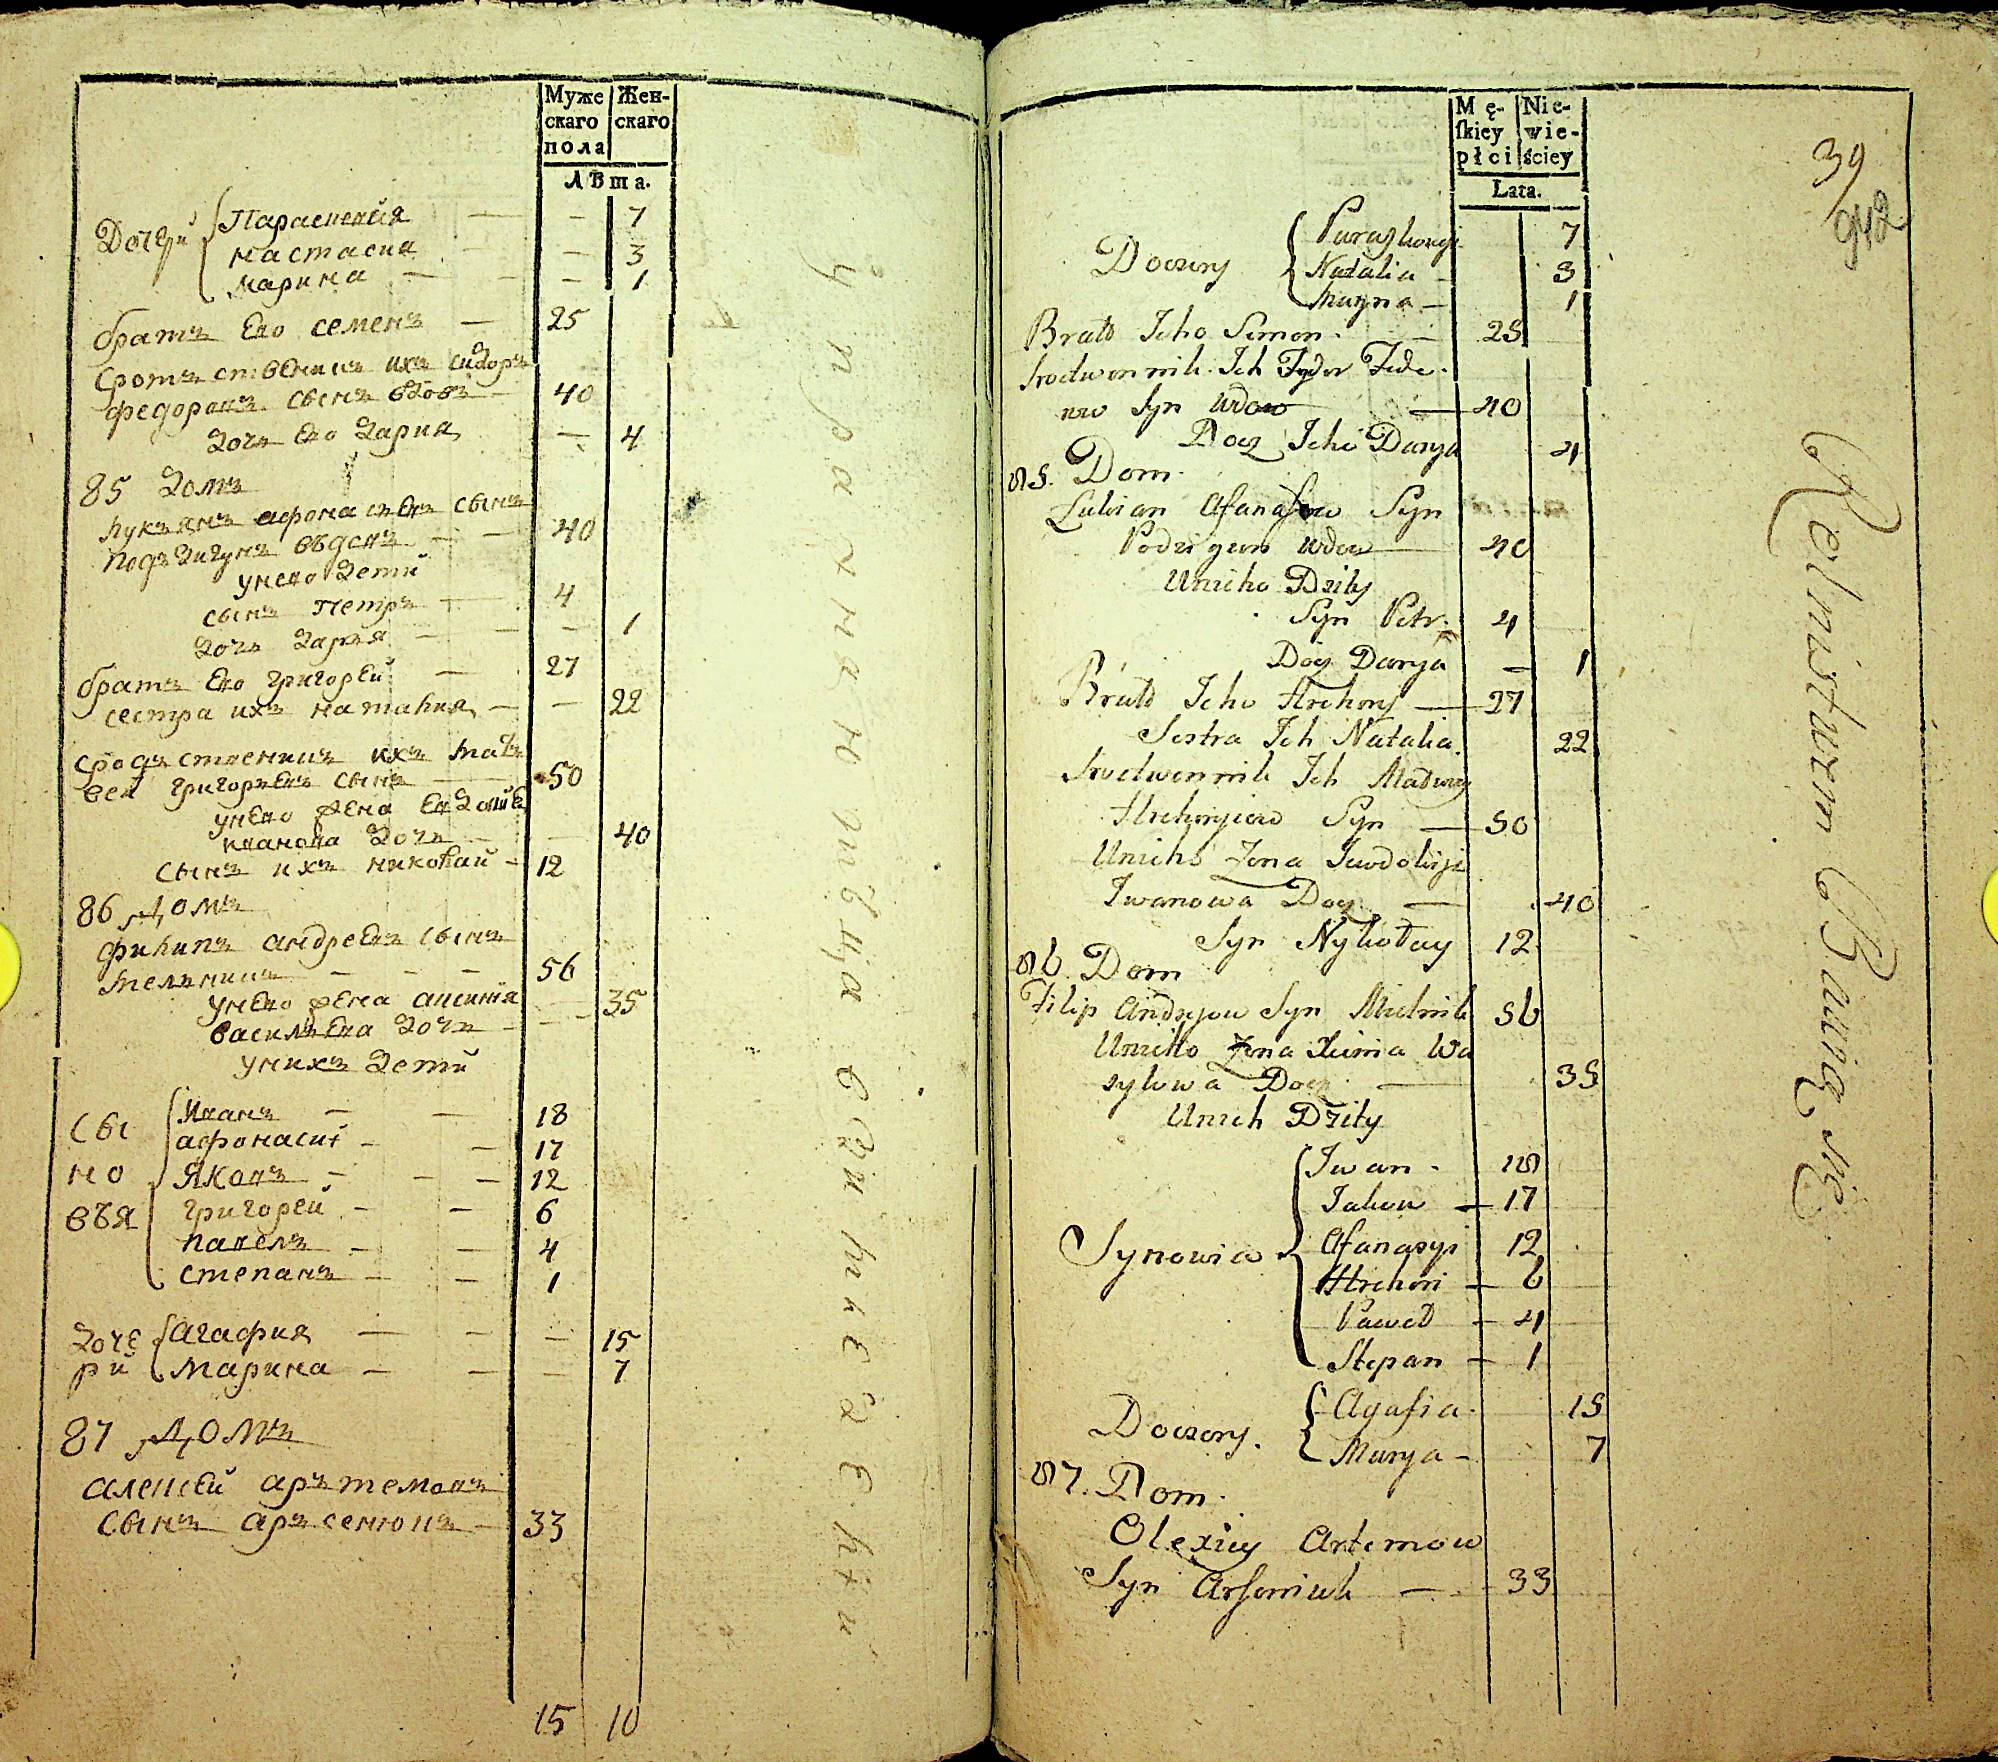 Муже Жен-
скаго скаго
пола
Лѣта.
Дочери Параскевия — — 7
настасия — — 3
марина — — 1
братъ Его семенъ — 25
сротъственикъ ихъ сидоръ
федоровъ сынъ вдовъ — 40
дочь Его дария — 4
85 домъ
лукянъ афонасьевъ сынъ
подъдигунъ вдовъ — — 40
унего дети
сынъ петръ — 4
дочь дарья — — 1
братъ Его григорей — 27
сестра ихъ наталия — — 22
сродственикъ ихъ мат
вей григорьевъ сынъ — 50
унЕго жена Евдокия
иванова дочь — — 40
сынъ ихъ николай — 12
86 домъ
филипъ андреевъ сынъ
мельникъ — — — 56
унЕго жена аксиния 35
васильева дочь — —
унихъ дети
сы иванъ — — 18
афонасий — — 17
но Яковъ — — — 12
вья григорей — — 6
павелъ — — 4
степанъ — — 1
доче агафия — — — 15
ри марина — — — 7
87 домъ
алексей арътемовъ
сынъ аръсенюкъ — 33
15 10
управляющій
Mę- Nie-
ſkiey wie-
płci ściey
Lata.
39
942
Doczery Paraszkowja 7
Natalia — 3
Maryna — 1
Bratt Jeho Semon — 25
Srodwennik Ich Sydor Fede-
row Syn wdow — 40
Docz Jeho Darya 4
85. Dom
Lukian Afanasow Syn
Podzigun wdow — 40
Unieho Dzity
Syn Petr. 4
Docz Darya — 1
Bratt Jeho Hrehory — 27
Sestra Ich Natalia. 22
Srodwennik Ich Madwey
Hrehoryiow Syn — 50
Unieho Zona Juwdokija
Iwanowa Docz — 40
Syn Nykołay 12
86. Dom
Filip Andryow Syn Mielnik 56
Unieho Zona Xienia Wa
sylowa Docz — 35
Unich Dzity
Synowia Iwan — 18
Jakow — 17
Afanasyi 12
Hrehori — 6
Paweł — 4
Stepan — 1
Doczery. Agafia. 15
Marya — 7
87. Dom.
Olexiey Artemow
Syn Arsoniuk — 33